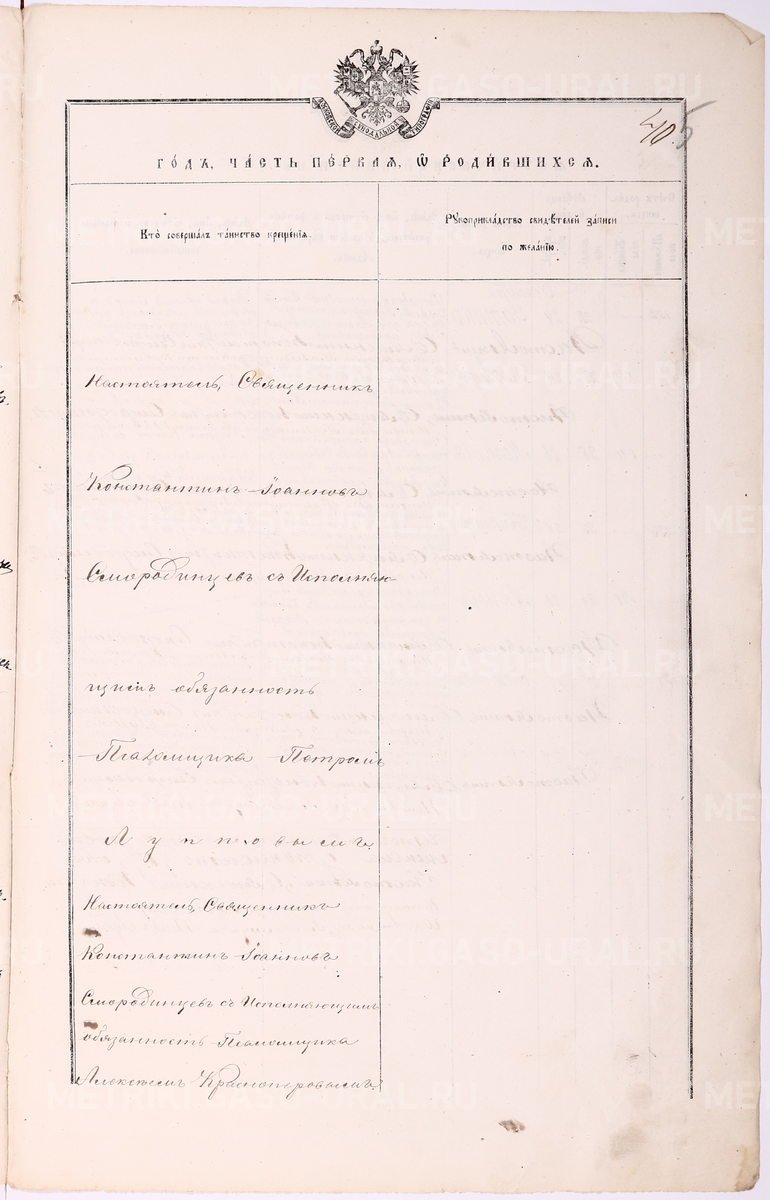 МОСКОВСКОЙ СѴНОДАЛЬНОЙ ТИПОГРАФІИ
405
го́дъ, ча́сть пе́рваѧ, ѡ҆ роди́вшихсѧ.
Кто̀ соверша́лъ та́инство креще́нїѧ.
Рꙋкоприкла́дство свидѣ́телей за́писи
по жела́нїю.
Настоятель, Священникъ
Константинъ Іоанновъ
Смородинцевъ съ Исполняю-
щимъ обязанность
Псаломщика Петромъ
Лупповымъ.
Настоятель, Священникъ
Константинъ Іоанновъ
Смородинцевъ съ Исполняющимъ
обязанность Псаломщика
Алексѣемъ Красноперовымъ.
METRIKI.GASO-URAL.RU